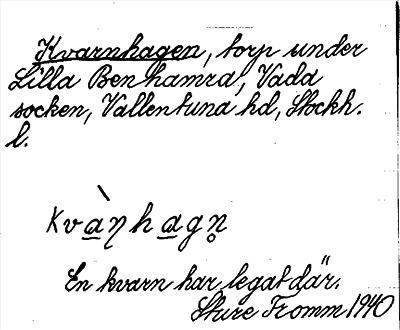 Kvarnhagen, torp under
Lilla Benhamra, Vada
socken, Vallentuna hd, Stockh.
l.
kvàꞃhagṇ
En kvarn har legat där.
Sture Fromm 1940